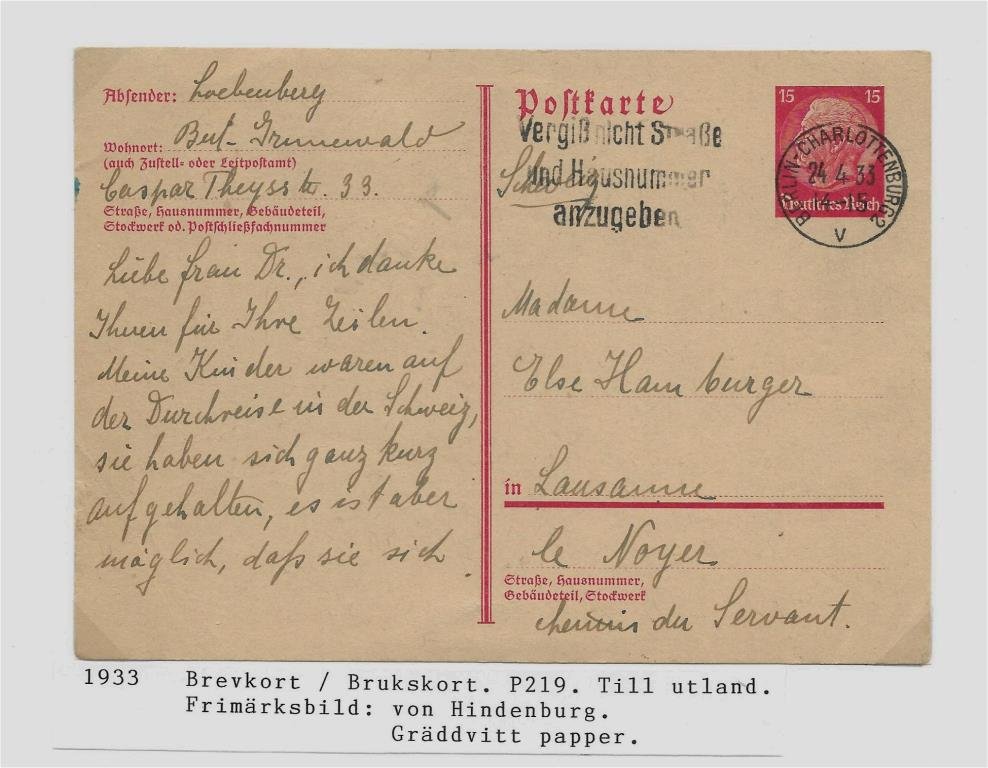 Absender: Loebenberg
Wohnort: Berl.-Grunewald
(auch Zustell- oder Leitpostamt)
Caspar Theyss str. 33.
Straße, Hausnummer, Gebäudeteil,
Stockwerk od. Postschließfachnummer
Liebe Frau Dr., ich danke
Ihnen für Ihre Zeilen.
Meine Kinder waren auf
der Durchreise in der Schweiz,
sie haben sich ganz kurz
aufgehalten, es ist aber
möglich, daß sie sich
Postkarte
Vergiß nicht Straße
und Hausnummer
anzugeben
Schweiz
15 15
Deutsches Reich
BERLIN-CHARLOTTENBURG 2
24.4.33
14-15
V
Madame
Else Hamburger
in Lausanne
le Noyer
Straße, Hausnummer,
Gebäudeteil, Stockwerk
chemin du Servant.
1933 Brevkort / Brukskort. P219. Till utland.
Frimärksbild: von Hindenburg.
Gräddvitt papper.